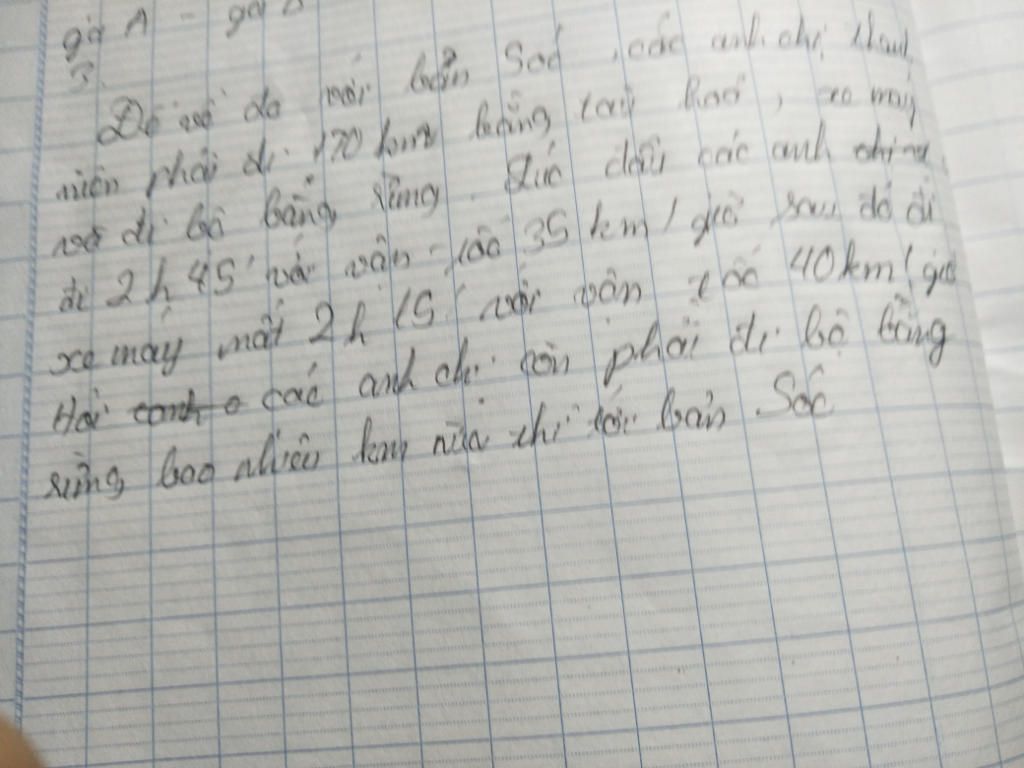 ga A - ga
3.
Để đi đến với bản Sóc, các anh chị thanh
niên phải đi 170 km bằng tàu hoả, xe máy
và đi bộ băng rừng. Lúc đầu các anh chị
đi 2h 45' với vận tốc 35 km/giờ sau đó đi
xe máy mất 2h 15' với vận tốc 40km/giờ
Hỏi các anh chị còn phải đi bộ băng
rừng bao nhiêu km nữa thì tới bản Sóc